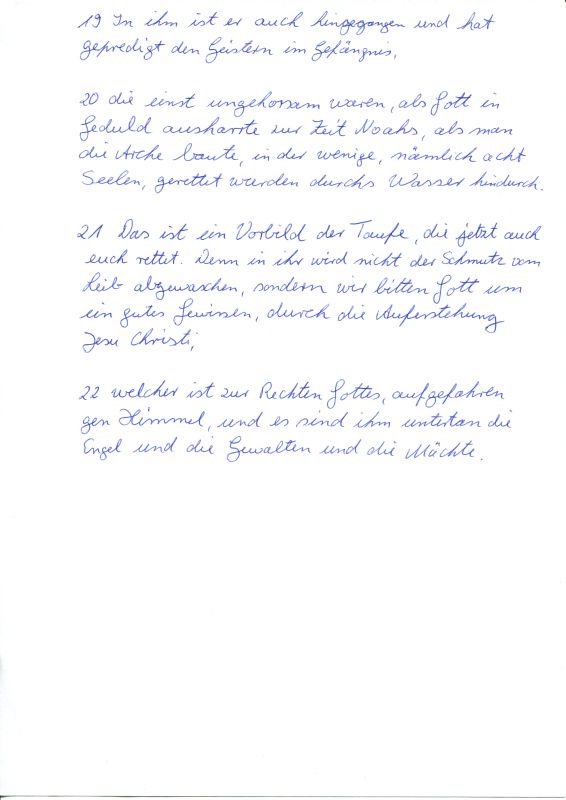 19 In ihm ist er auch hingegangen und hat
gepredigt den Geistern im Gefängnis,
20 die einst ungehorsam waren, als Gott in
Geduld ausharrte zur Zeit Noahs, als man
die Arche baute, in der wenige, nämlich acht
Seelen, gerettet wurden durchs Wasser hindurch.
21 Das ist ein Vorbild der Taufe, die jetzt auch
euch rettet. Denn in ihr wird nicht der Schmutz vom
Leib abgewaschen, sondern wir bitten Gott um
ein gutes Gewissen, durch die Auferstehung
Jesu Christi,
22 welcher ist zur Rechten Gottes, aufgefahren
gen Himmel, und es sind ihm untertan die
Engel und die Gewalten und die Mächte.